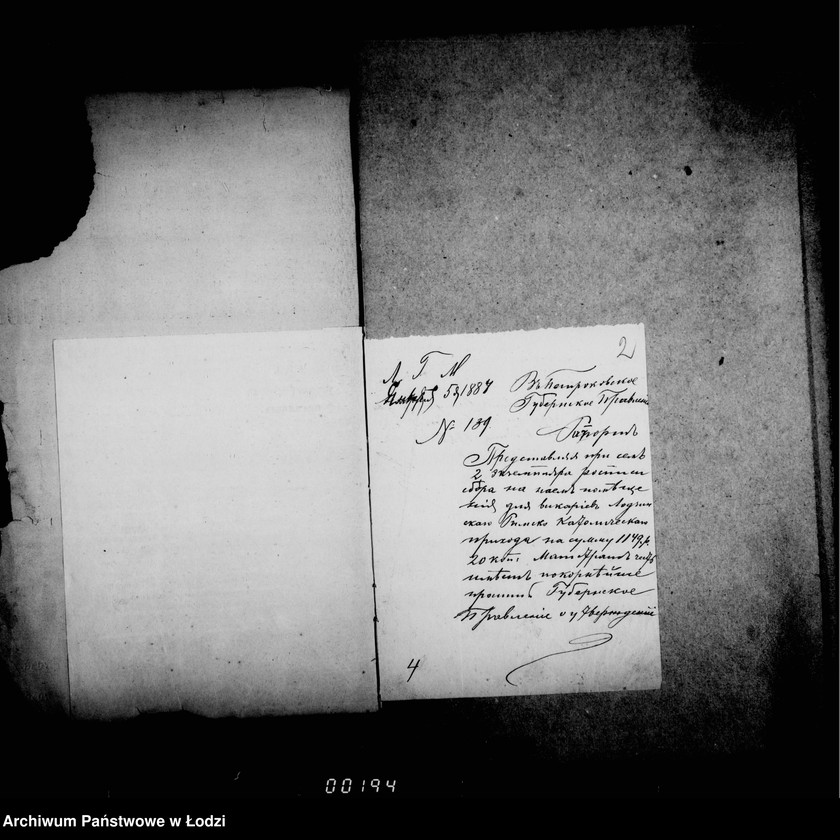 2
Л Г М
5 1887
№ 189
Въ Петроковское
Губернское Правлен
Рапортъ
Представляя при семъ
2 экземпляра росписи
сбора на наемъ помѣще
нія для викаріевъ Лодзин
скаго Римско Католическаго
прихода на сумму 1149 р.
20 коп. Магистратъ честь
имѣетъ покорнѣйше
просить Губернское
Правленіе о утвержденіи
4
00194
Archiwum Państwowe w Łodzi